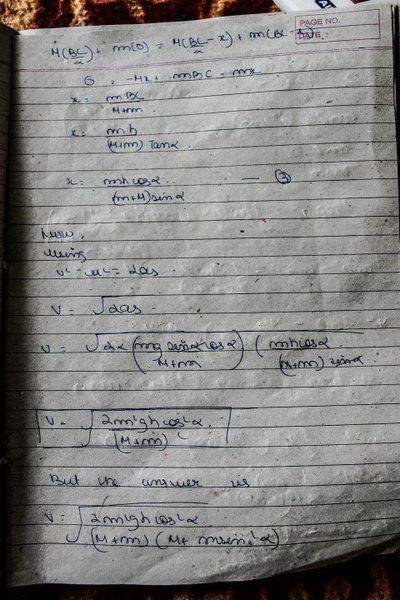 PAGE NO.
DATE:
M(BC/2) + m(0) = M(BC/2 - x) + m(BC - x)
0 = -Mx + mBC - mx
x = mBC/(M+m)
x = mh/((M+m) Tanα)
x = mh cosα/((m+M) sinα) — ③
Now,
using
v² - u² = 2as
V = √2as
V = √(2 x (mg sinα cosα/(M+m)) (mh cosα/((M+m) sinα)))
V = √(2m²gh cos²α/(M+m)²)
But the answer is
V = √(2m²gh cos²α/((M+m) (M + m sin²α)))